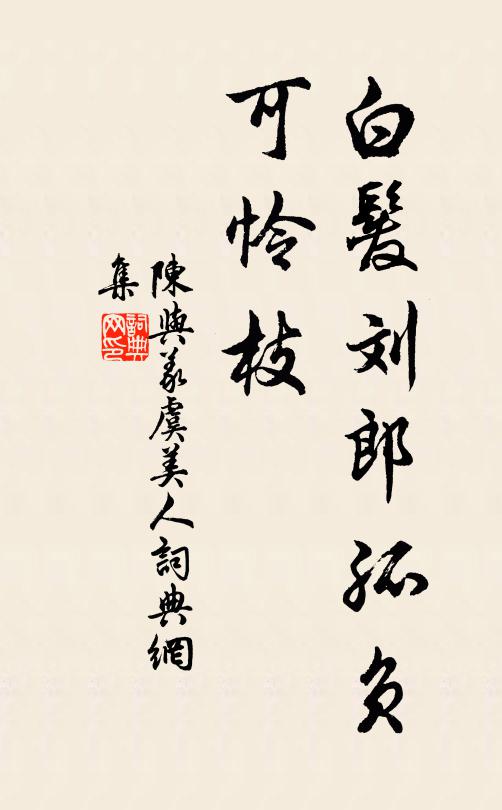 白髮刘郎孤负
可怜枝
陳與義虞美人詞典網
集
詞典
网印